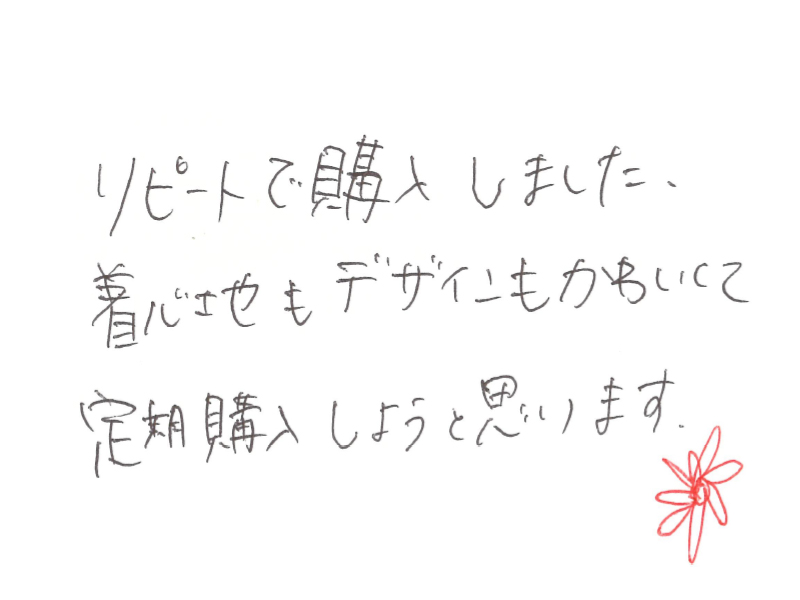 リピートで購入しました、
着心地もデザインもかわいくて
定期購入しようと思います.